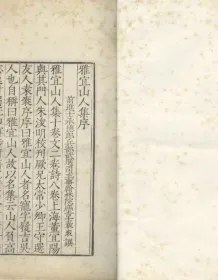 雅宜山人集序
雅宜山人集十卷文二卷詩八卷上海董宜陽
與其門人朱浚明校刊厥兄太常少卿王守選
友人袁袠序曰雅宜山人者名寵字履吉吳
人也自稱曰雅宜山人故以名集云山人高